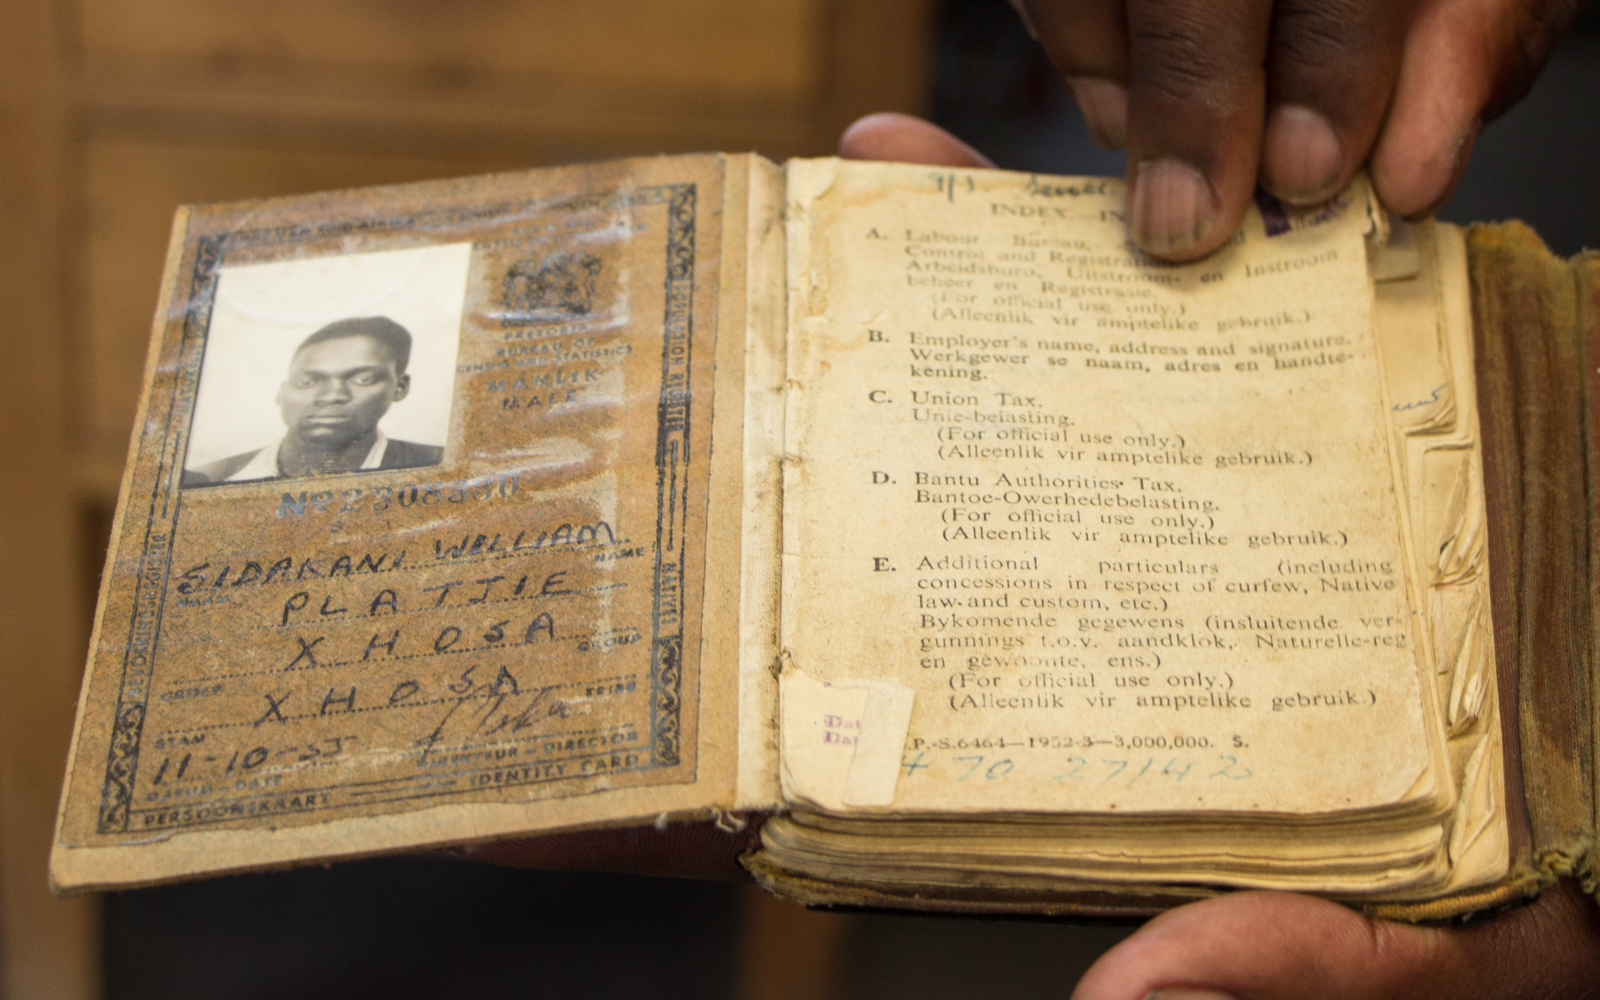 PRETORIA
BUREAU OF
CENSUS AND STATISTICS
MANLIK
MALE
POPULATION REGISTER
NATIVES
BEVOLKINGSREGISTER
SIDAKANI WILLIAM
NAME
PLATJIE
XHOSA
GROUP
GROEP
XHOSA
TRIBE
STAM
11-10-55
DIREKTEUR - DIRECTOR
DATUM - DATE
PERSOONSKAART
IDENTITY CARD
9/3
INDEX
A. Labour Bureau,
Control and Registration
Arbeidsburo, Uitstroom- en Instroom
beheer en Registrasie.
(For official use only.)
(Alleenlik vir amptelike gebruik.)
B. Employer's name, address and signature.
Werkgewer se naam, adres en handte-
kening.
C. Union Tax.
Unie-belasting.
(For official use only.)
(Alleenlik vir amptelike gebruik.)
D. Bantu Authorities Tax.
Bantoe-Owerhedebelasting.
(For official use only.)
(Alleenlik vir amptelike gebruik.)
E. Additional particulars (including
concessions in respect of curfew, Native
law and custom, etc.)
Bykomende gegewens (insluitende ver-
gunnings t.o.v. aandklok, Naturelle-reg
en gewoonte, ens.)
(For official use only.)
(Alleenlik vir amptelike gebruik.)
.P.-S.6464—1952-3—3,000,000. S.
470 27142